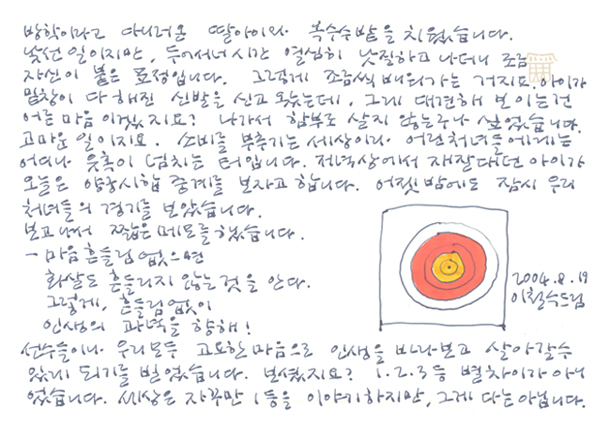 방학이라고 다니러온 딸아이와 옥수수밭을 치웠습니다.
낯선 일이지만, 두어서너시간 열심히 낫질하고 나더니 조금
자신이 붙은 표정입니다. 그렇게 조금씩 배워가는 거지요. 아이가
밑창이 다 해진 신발을 신고 왔는데, 그게 대견해 보이는건
어른 마음이겠지요? 나가서 함부로 살지 않는구나 싶었습니다.
고마운 일이지요. 소비를 부추기는 세상이라 어린처녀들에게는
어디나 유혹이 넘치는 터입니다. 저녁상에서 재잘대던 아이가
오늘은 양궁시합 중계를 보자고 합니다. 어젯밤에도 잠시 우리
처녀들의 경기를 보았습니다.
보고나서 짧은 메모를 했습니다.
- 마음 흔들림 없으면
화살도 흔들리지 않는 것을 안다.
그렇게, 흔들림없이
인생의 과녁을 향해!
2004.8.19
이철수드림
선수들이나 우리모두 고요한 마음으로 인생을 바라보고 살아갈수
있게 되기를 빌었습니다. 보셨지요? 1.2.3등 별차이가 아니
었습니다. 세상은 자꾸만 1등을 이야기하지만, 그게 다는 아닙니다.